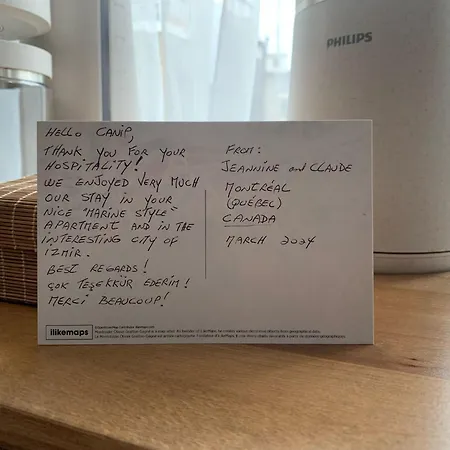 PHILIPS
HELLO CANIP,
THANK YOU FOR YOUR
HOSPITALITY!
WE ENJOYED VERY MUCH
OUR STAY IN YOUR
NICE "MARINE STYLE"
APARTMENT AND IN THE
INTERESTING CITY OF
IZMIR.
BEST REGARDS!
ÇOK TEŞEKKÜR EDERIM!
MERCI BEAUCOUP!
FROM:
JEANNINE and CLAUDE
MONTRÉAL
(QUÉBEC)
CANADA
MARCH 2024
ilikemaps